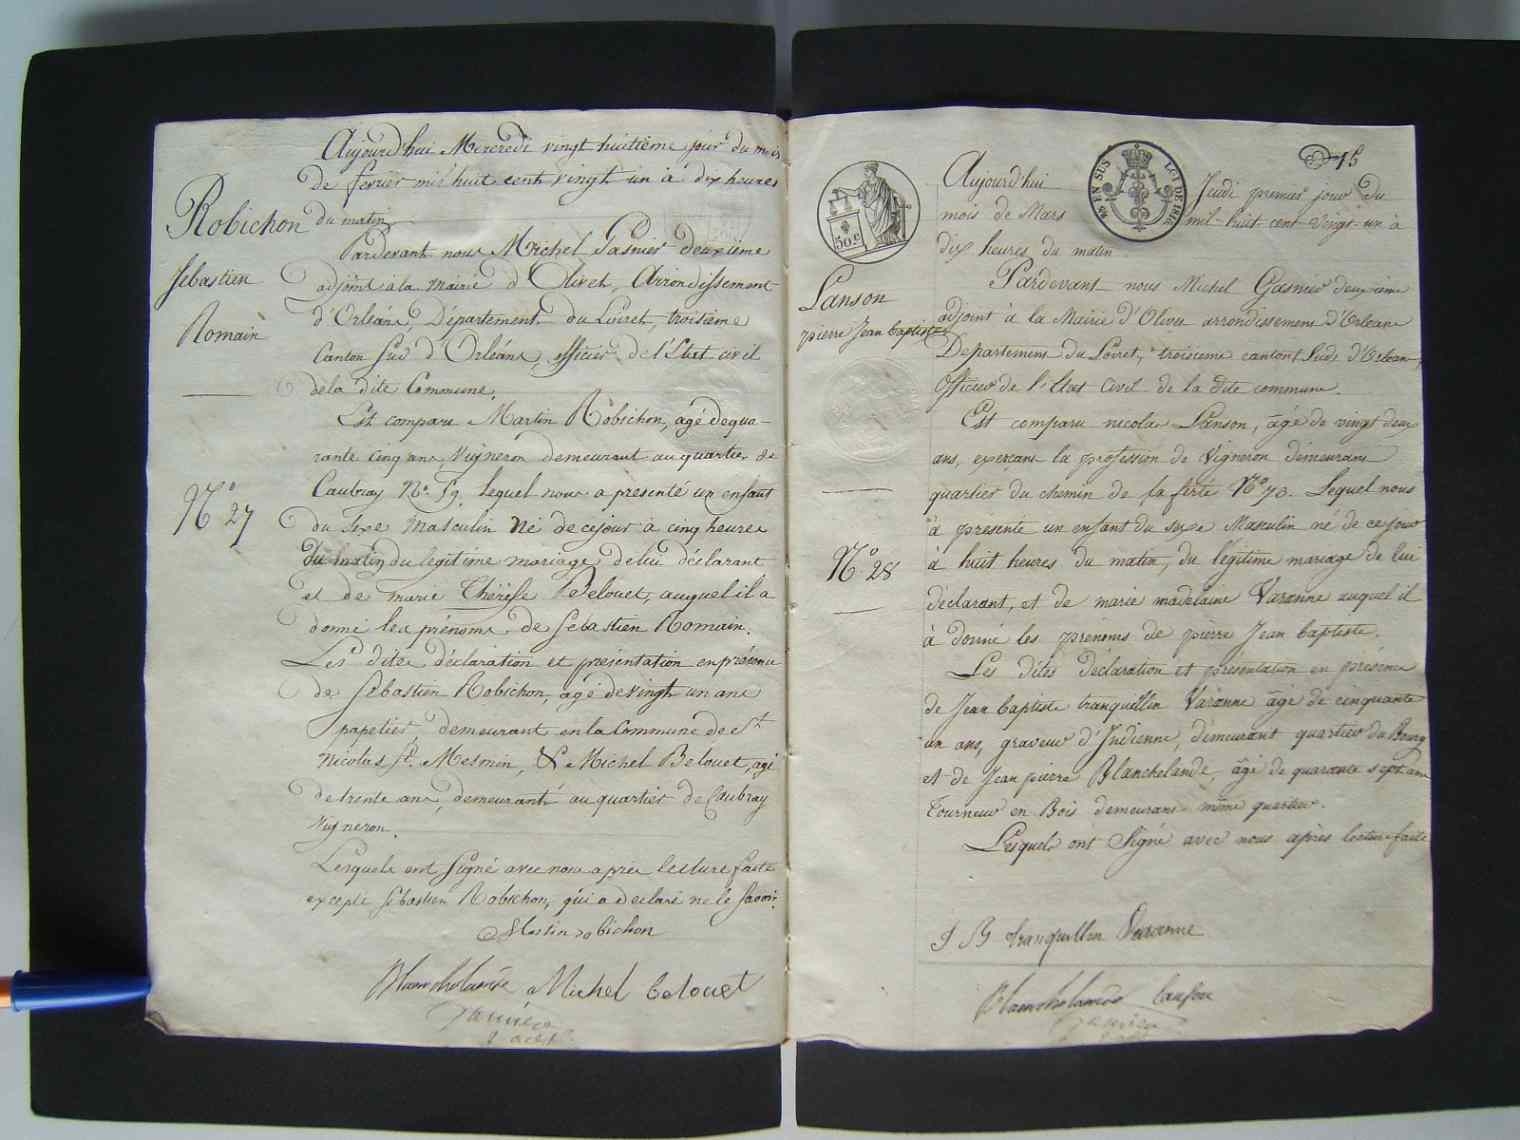 Aujourd'hui Mercredi vingt huitième jour du mois
de fevrier mil huit cent vingt un à dix heures
du matin
Robichon
Sebastien
Romain
N° 27
Pardevant nous Michel Gasnier deuxième
adjoint à la mairie d'Olivet, Arrondissement
d'Orléans, Département du Loiret, troisième
Canton Sud d'Orléans, officier de l'Etat civil
de la dite Commune.
Est comparu Martin Robichon, agé de qua-
rante cinq ans, vigneron demeurant au quartier de
Caubray N°. 59. Lequel nous a presenté un enfant
du sexe masculin Né de cejour à cinq heures
du matin du legitime mariage de lui déclarant
et de marie Thérèse Belouet, auquel il a
donné les prénoms de Sebastien Romain.
Les dites déclaration et présentation en présence
de Sébastien Robichon, agé de vingt un ans
papetier, demeurant en la Commune de St
Nicolas St. Mesmin, & Michel Belouet, agé
de trente ans, demeurant au quartier de Caubray
vigneron.
Lesquels ont Signé avec nous après lecture faite
excepté Sébastien Robichon, qui a declaré ne le savoir.
Martin robichon
Blanchelande Michel belouet
Gasnier
2 adjt
15
50 c.
EN SUS
LOI DE 1816
Aujourd'hui Jeudi premier jour du
mois de Mars mil huit cent vingt-un à
dix heures du matin.
Lanson
pierre Jean baptiste
N° 28
Pardevant nous Michel Gasnier deuxième
adjoint à la Mairie d'Olivet arrondissement d'Orleans
Departement du Loiret, troisieme canton Sud d'Orleans,
Officier de l'Etat Civil de la dite commune.
Est comparu nicolas Lanson, âgé de vingt deux
ans, exerçant la profession de Vigneron demeurant
quartier du chemin de la ferté N° 73. Lequel nous
à présenté un enfant du sexe Masculin né de ce jour
à huit heures du matin, du légitime mariage de lui
déclarant, et de marie madelaine Varanne auquel il
à donné les prenoms de pierre Jean baptiste.
Les dites déclaration et présentation en présence
de Jean baptiste tranquillin Varanne âgé de cinquante
un ans, graveur d'Indienne, demeurant quartier du Bourg
et de Jean pierre Blanchelande, âgé de quarante sept ans
Tourneur en Bois demeurant même quartier.
Lesquels ont Signé avec nous après lecture faite
J B tranquillin Varanne
Blanchelande Lanson
Gasnier